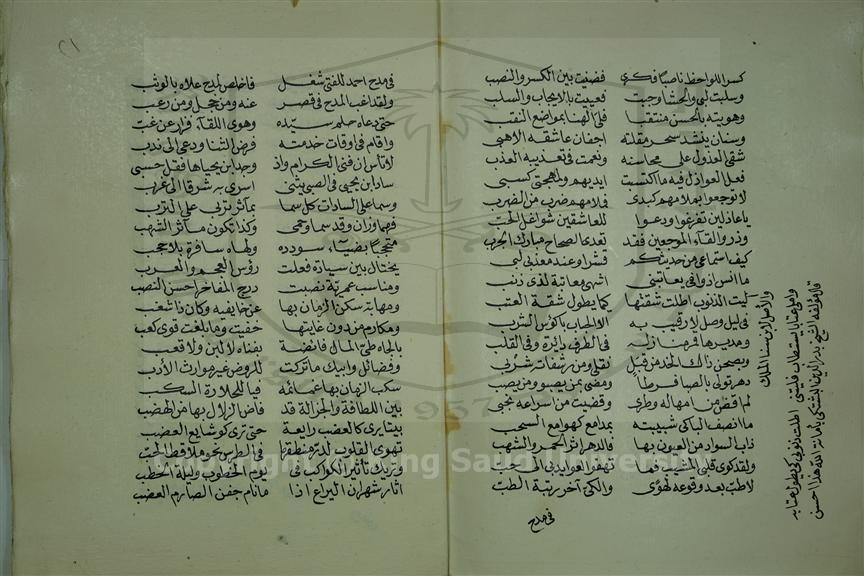 كسر اللواحظ ناصبا فكري فضنيت بين الكسر والنصب
وسلبت لبي والحشا وجبت فعييت بالايجاب والسلب
وهويته بالحسن منتقبا فلي الهنا بمواضع النقب
وسنان ينشد سحر مقلته اجفان عاشقه الاهبي
شقي العذول على محاسنه ونعمت في تعذيبه العذب
فعل العواذل فيه ما اكتسبت ايديهم ولمهجتي كسبي
لا توجعوا بملامهم كبدي فلامهم ضرب من الضرب
يا عاذلين تفرغوا ودعوا للعاشقين شواغل الحب
وذروا لقاء الموجعين فقد تعدى الصحاح مبارك الجرب
كيف استماعي من حديثكم قشرا وعند معذبي لبي
ما انس اذ وافى يعاتبني اشهى معاتبة لذي ذنب
كيت الذنوب اطلت شقتها كيما يطول شقة العتب
في ليل وصل لا رقيب به الا الحباب بكؤس الشرب
ومديرها قمر منازله في الطرف دائرة وفي القلب
وبصحن ذاك الخد من قبل نقلي ومن رشفاته شربي
دهر تولى بالصبا فرطا ومضى بمن يصبو ومن يصب
لم اقض من امهاله وطري وقضيت من اسراعه نحبي
ما انصف الباكي شبيبته بمدامع كهوامع السحب
ذاب السواد من العيون بها فالدهر اثر الحمر والشهب
ولقد كوى قلبي المشيب فما تهفو العوايد بي الى حب
لاطب بعد وقوعه لهوى والكي آخر رتبة الطب
في مدح
والاصل لابن سنا الملك
واملي عتابا يستطاب فليتني اطلت ذنوبي كي يطول عتابه
قال مؤلفه الشيخ بدر الدين البشتكي بأمانة الله هذا احسن
٢١
في مدح احمد للفتى شغل فاخلص لمدح علاه بالوثب
ولقد اغب المدح في قصر عنه ومن خجل ومن رعب
حتى دعاه حلم سيده وهوى اللقاء فزار عن غب
واقام في اوقات خدمته فرض الثنا ودعى الى ندب
لا قاس ان فتى الكرام واذ وجد ابن يحياها فقل حسبي
ساد ابن يحيى في الصبي يثني اسرى به شرقا الى غرب
وسما على السادات كل سما بمآثر تربى على الترب
فهما وزان وقد سما وحمى وكذا تكون مآثر الشهب
متحجبا بضياء سودده ولهاه سافرة بلا حجب
يختال بين سيادة فعلت رؤس العجم والعرب
ومناسب عمرية نصبت درج المفاخر احسن النصب
ومهابة سكن الزمان بها عن خايفيه وكان ذا شغب
ومكارم من دون غايتها خفيت وما بلغت قوى كعب
بالجاه طي المال فائضة بفناه لا لبن ولا قعب
وفضائل وابيك ما تركت للروض غير موارث الأدب
سكب الزمان بها غمائمه فيا للحلاوة السكب
بين اللطافة والجزالة قد فاض الزلال بها من الهضب
حتى ترى كوشايع العضب
تهوى القلوب لدر منطقها في الطرس نحو ملاقط الحب
وتريك تأثير الكواكب في يوم الخطوب وليلة الخطب
آثار شهر ان اليراع اذا ما نام جفن الصارم العضب